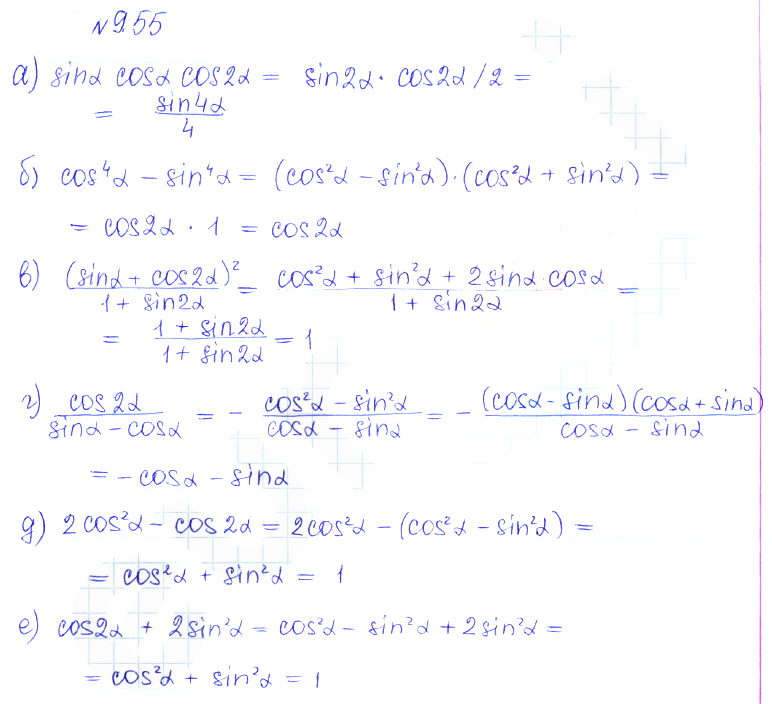 №955
а) sinα cosα cos2α = sin2α · cos2α / 2 =
= sin4α / 4
б) cos⁴α − sin⁴α = (cos²α − sin²α) · (cos²α + sin²α) =
= cos2α · 1 = cos2α
в) (sinα + cos2α)² / 1 + sin2α = cos²α + sin²α + 2sinα · cosα / 1 + sin2α =
= 1 + sin2α / 1 + sin2α = 1
г) cos2α / sinα − cosα = − cos²α − sin²α / cosα − sinα = − (cosα − sinα)(cosα + sinα) / cosα − sinα
= − cosα − sinα
д) 2cos²α − cos2α = 2cos²α − (cos²α − sin²α) =
= cos²α + sin²α = 1
е) cos2α + 2sin²α = cos²α − sin²α + 2sin²α =
= cos²α + sin²α = 1